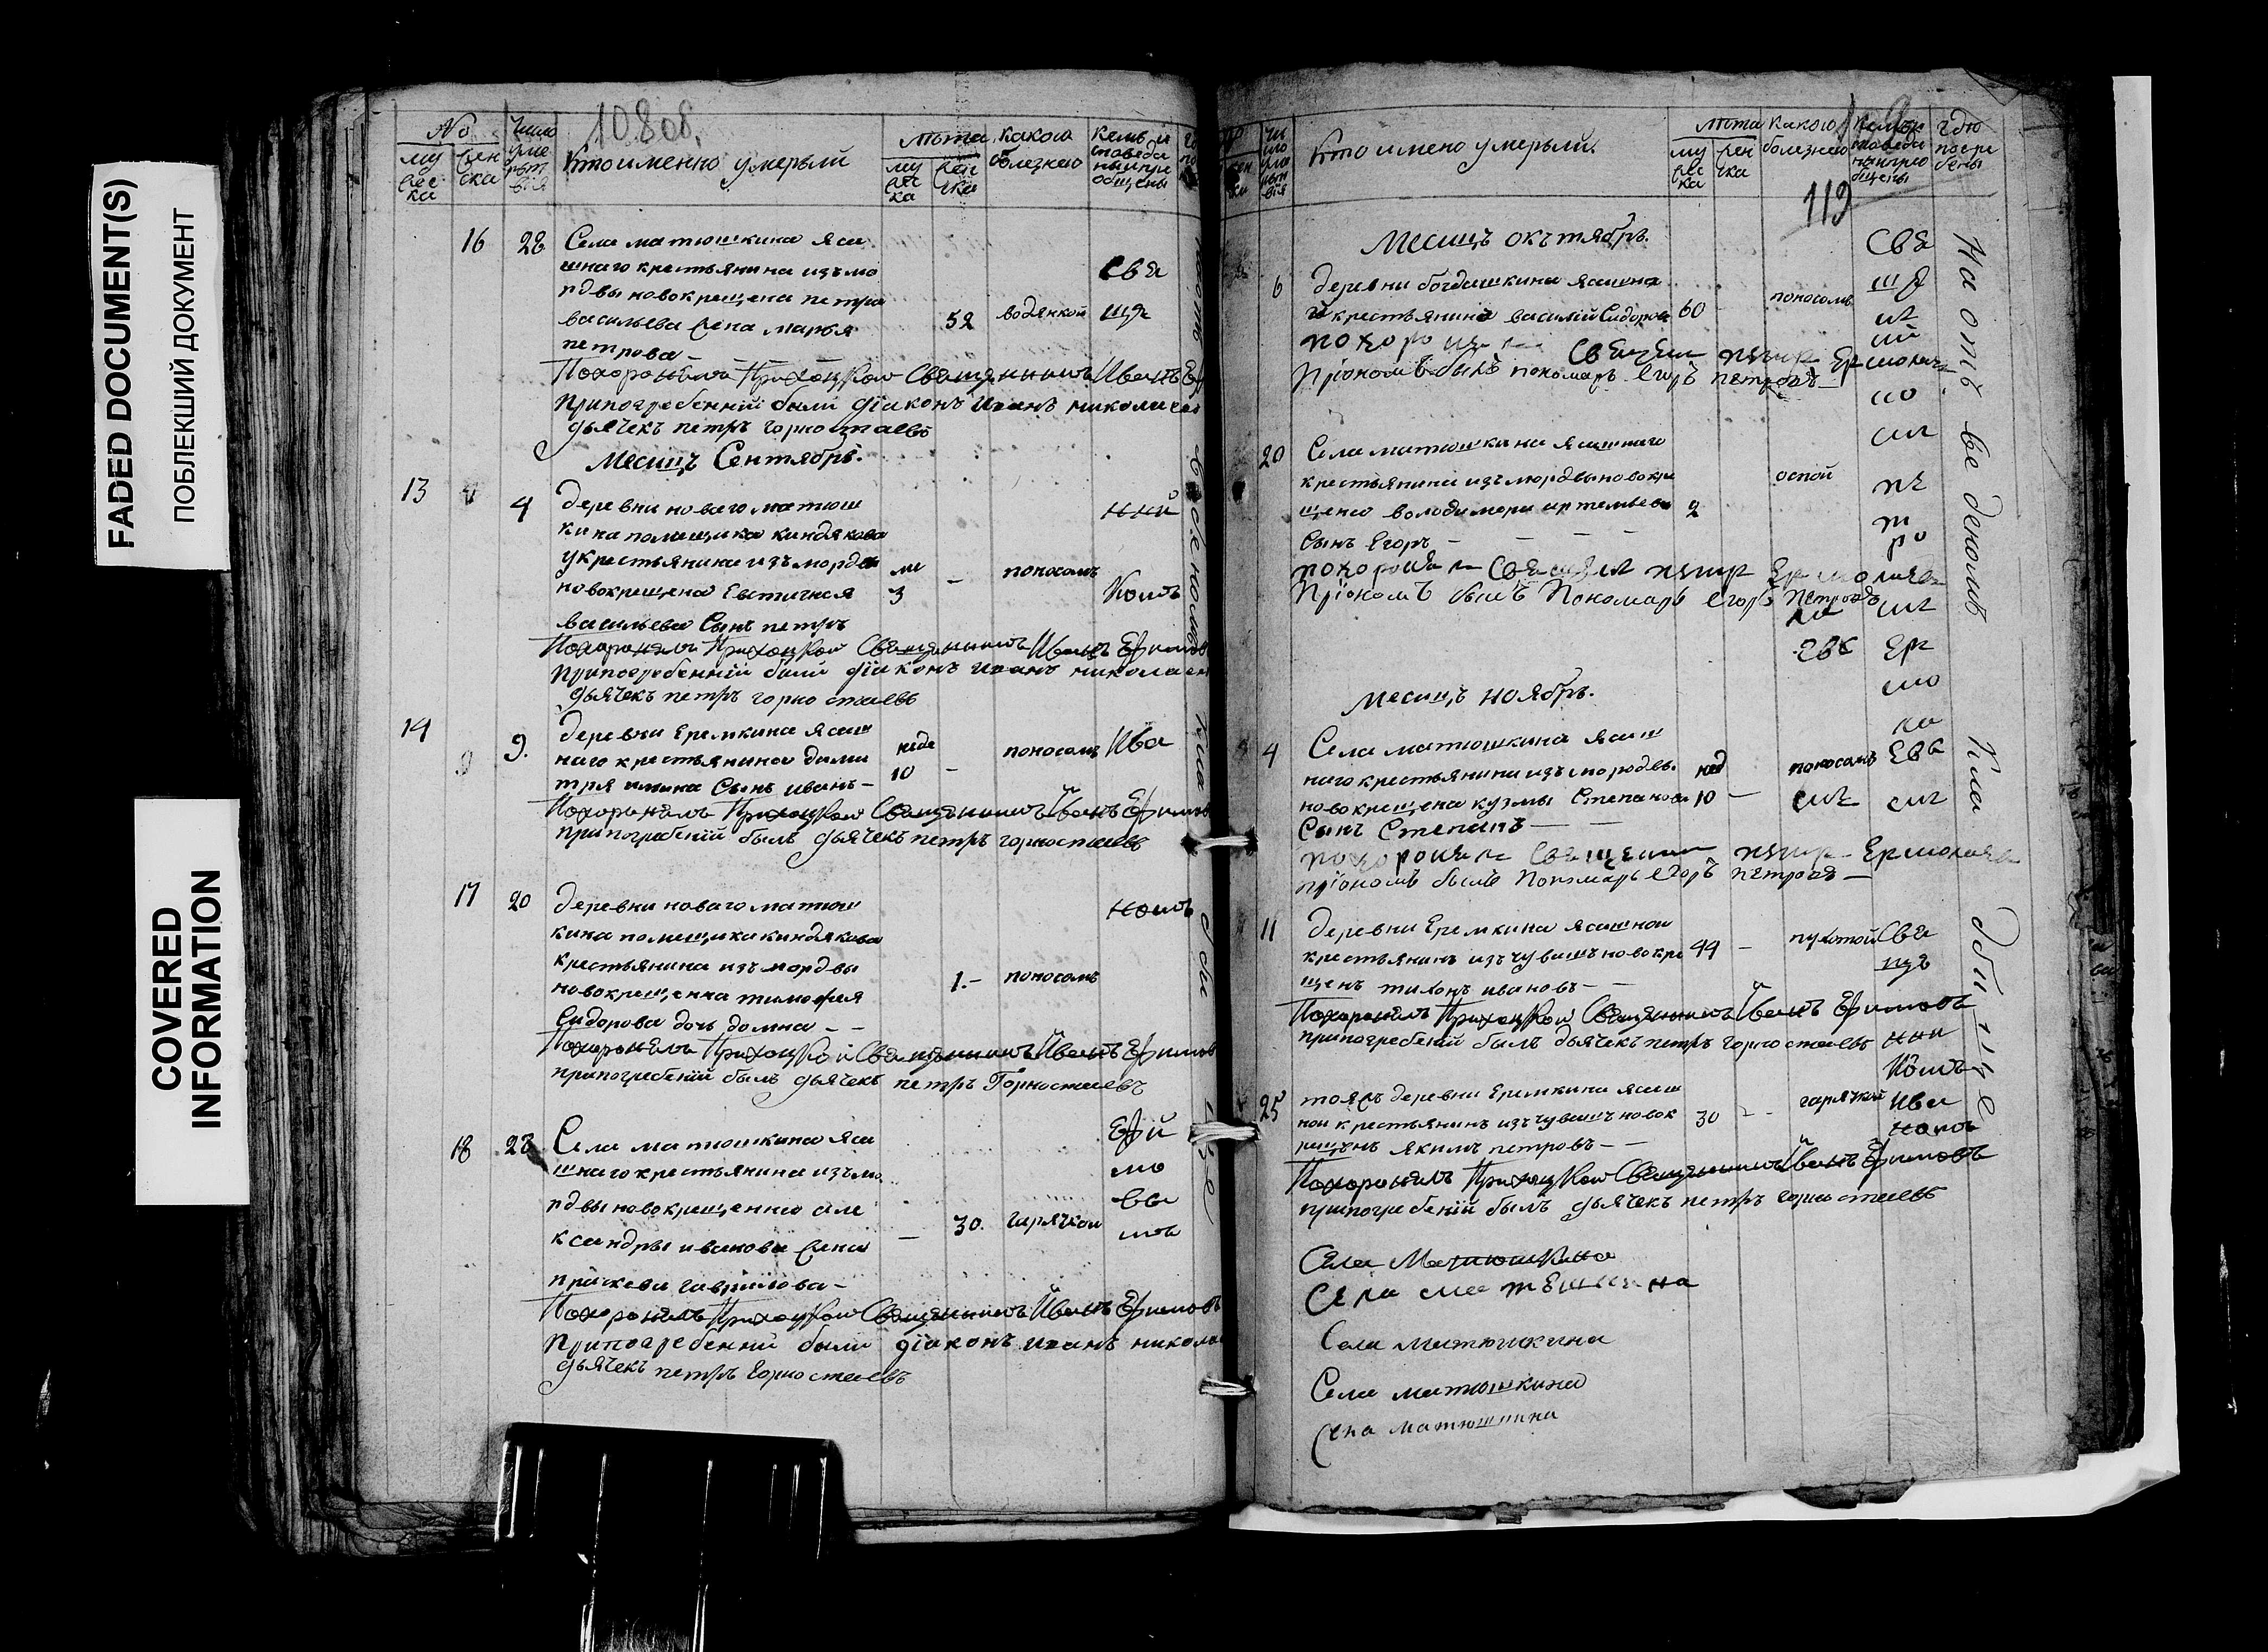 FADED DOCUMENT(S)
ПОБЛЕКШИЙ ДОКУМЕНТ
COVERED
INFORMATION
10808.
№
му
жес
ка
жен
ска
число
уме
рт
вія
Кто именно умерый
лѣта
му
жес
ка
жен
ска
какою
болезнею
кемъ и
споведа
ны и при
общены
16 28 Села матюшкина яса
шнаго крестьянина изъ мо
рдвы новокрещена петра
васильева жена марья 52 водянкой
петрова —
свя
щя
Похоронялъ Приходской Священникъ Иванъ
при погребенiй были дiаконъ иванъ николаев
дьячекъ петръ горностаевъ
Месицъ Сентябрь.
13 4 деревни новаго матюш
кина помещика киндякова
у крестьянина изъ мордвы
новокрещена Евстигнея ме 3 — поносомъ
васильева Сынъ петръ
ний
комъ
Похоронялъ Приходской Священникъ Иванъ Ефимовъ
при погребенiй были дiаконъ иванъ николаев
дьячекъ петръ горностаевъ
14 9. деревни Еремкина ясаш
наго крестьянина дми неде 10 — поносомъ Ива
трия Сынъ иванъ —
Похоронялъ Приходской Священникъ Иванъ Ефимовъ
при погребенiй былъ дьячекъ петръ горностаевъ
17 20 деревни новаго матюш
кина помещика киндякова
крестьянина изъ мордвы
новокрещенна тимофея 1.— поносомъ
Сидорова дочь домна — —
номъ
Похоронялъ Приходской Священникъ Иванъ Ефимовъ
при погребенiй былъ дьячекъ петръ Горностаевъ
18 28 Села матюшкина яса
шнаго крестьянина изъ мо
рдвы новокрещенно але
ксандры иванова жена — 30. гарячкой
праскева гаврилова —
Ефи
мо
вы
мъ
Похоронялъ Приходской Священникъ Иванъ Ефимовъ
При погребенiй были дiаконъ иванъ никола
дьячекъ петръ горностаевъ
Кто имено умерый.
лѣта
му
жес
ка
жен
ска
какою
болезнею
где
погре
бены
119
Месицъ октябрь.
6 деревни богдашкина ясашна
й крестьянинъ василiй Сидоровъ 60 — поносомъ
свя
щя
Священ петр Ермолаев
При ономъ былъ пономарь Егоръ петровъ
20 Села матюшкина ясашнаго
крестьянина изъ мордвы новокре
щенно володимера артемьева 2 оспой
Сынъ Егоръ — — — —
пе
т
ро
похороня Священ петр Ермолаев
При ономъ былъ Пономарь Егоръ Петровъ
Месицъ ноябрь.
4 Села матюшкина ясаш
наго крестьянина изъ мордвы.
новокрещена кузмы Степанова нед 10 — поносомъ
Сынъ Степанъ — —
похороня Священ петр Ермолаев
при ономъ былъ Пономарь Егоръ петровъ —
11 деревни Еремкина ясашной
крестьянинъ изъ чувашъ новокре 44 —
щенъ тихонъ ивановъ — —
Свя
Похоронялъ Приходской Священникъ Иванъ Ефимовъ
при погребенiй былъ дьячекъ петръ горностаевъ
нни
комъ
25 тояжъ деревни Еремкина ясаш
ной крестьянинъ изъ чувашъ новок 30 — — гарячкой
рещенъ якимъ петровъ — —
Ива
номъ
Похоронялъ Приходской Священникъ Иванъ Ефимовъ
при погребенiй былъ дьячекъ петръ горностаевъ
Села Матюшкина
Села
Села Матюшкина
Села матюшкина
Села матюшкина